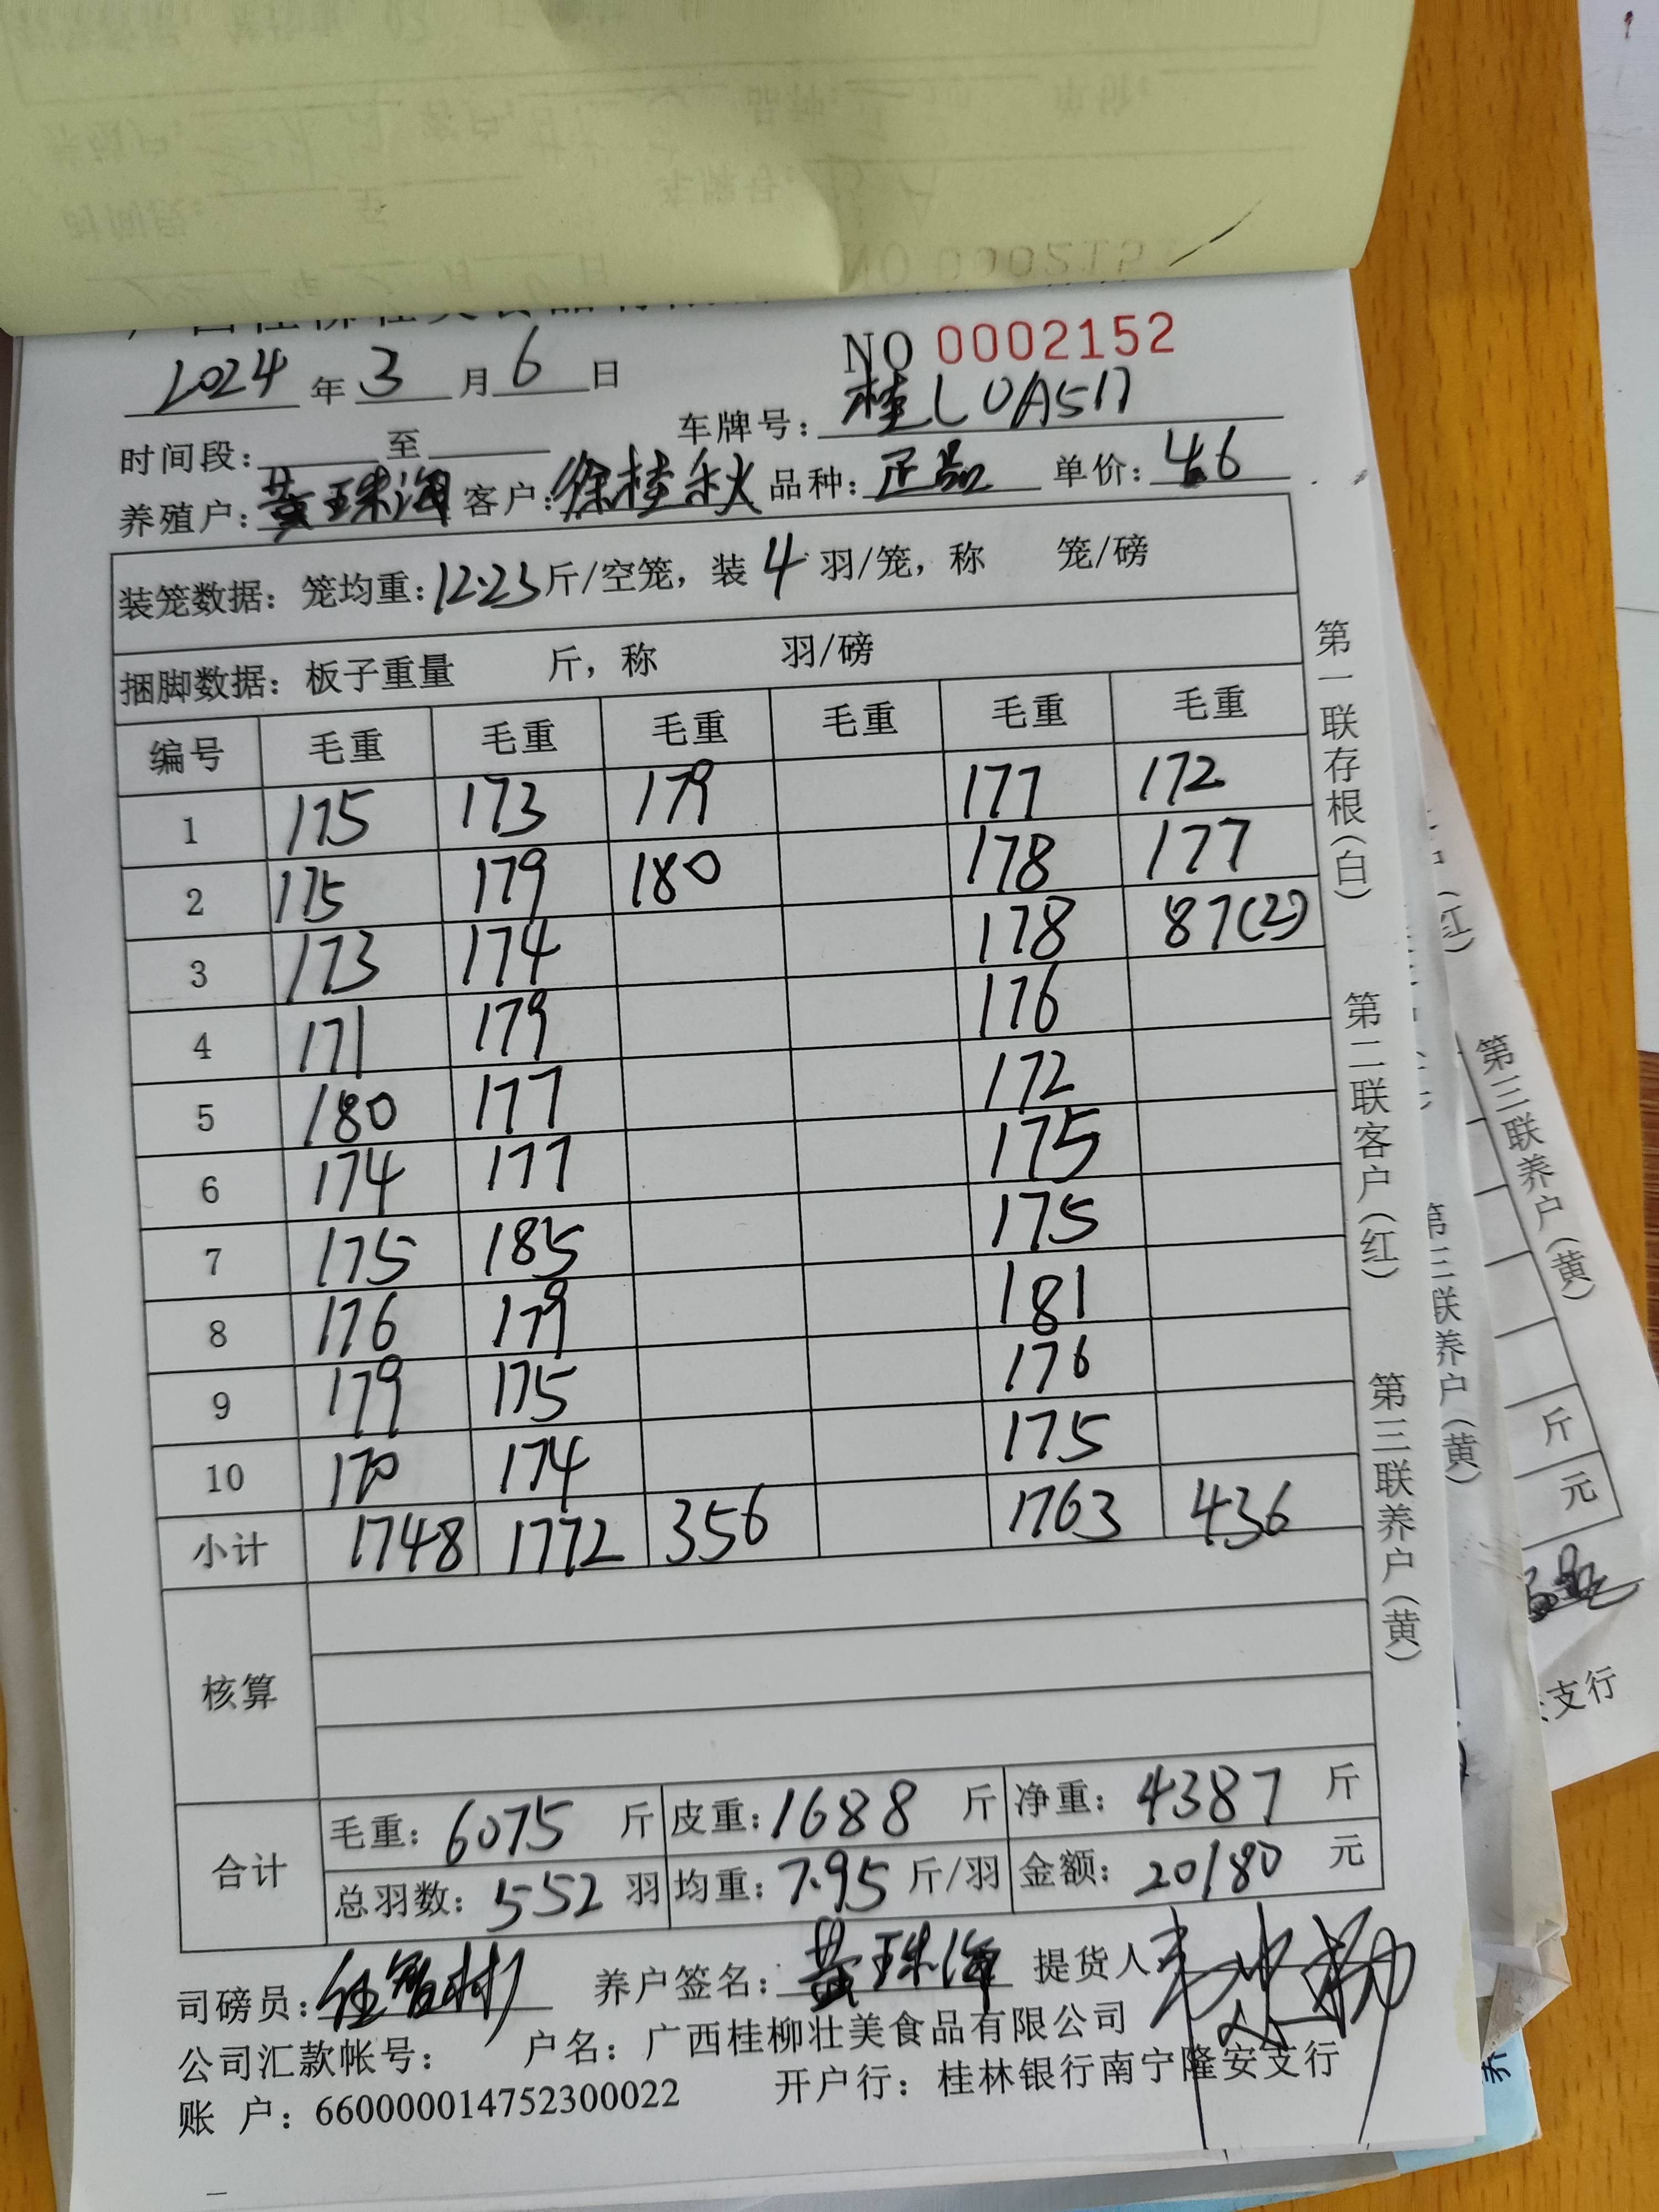 NO 0002152
2024 年 3 月 6 日
时间段: 至 车牌号: 桂L0A517
养殖户: 黄珠海 客户: 徐桂秋 品种: 正品 单价: 4.6
装笼数据: 笼均重: 12.23 斤/空笼, 装 4 羽/笼, 称 笼/磅
捆脚数据: 板子重量 斤, 称 羽/磅
编号 毛重 毛重 毛重 毛重 毛重 毛重
1 175 173 179 177 172
2 175 179 180 178 177
3 173 174 178 87(2)
4 171 179 176
5 180 177 172
6 174 177 175
7 175 185 175
8 176 179 181
9 179 175 176
10 170 174 175
小计 1748 1772 356 1763 436
核算
合计
毛重: 6075 斤 皮重: 1688 斤 净重: 4387 斤
总羽数: 552 羽 均重: 7.95 斤/羽 金额: 20180 元
司磅员: 养户签名: 黄珠海 提货人
公司汇款帐号: 户名: 广西桂柳壮美食品有限公司
账 户: 660000014752300022 开户行: 桂林银行南宁隆安支行
第一联存根(白) 第二联客户(红) 第三联养户(黄)
第三联养户(黄)
第三联养户(黄)
斤
元
支行